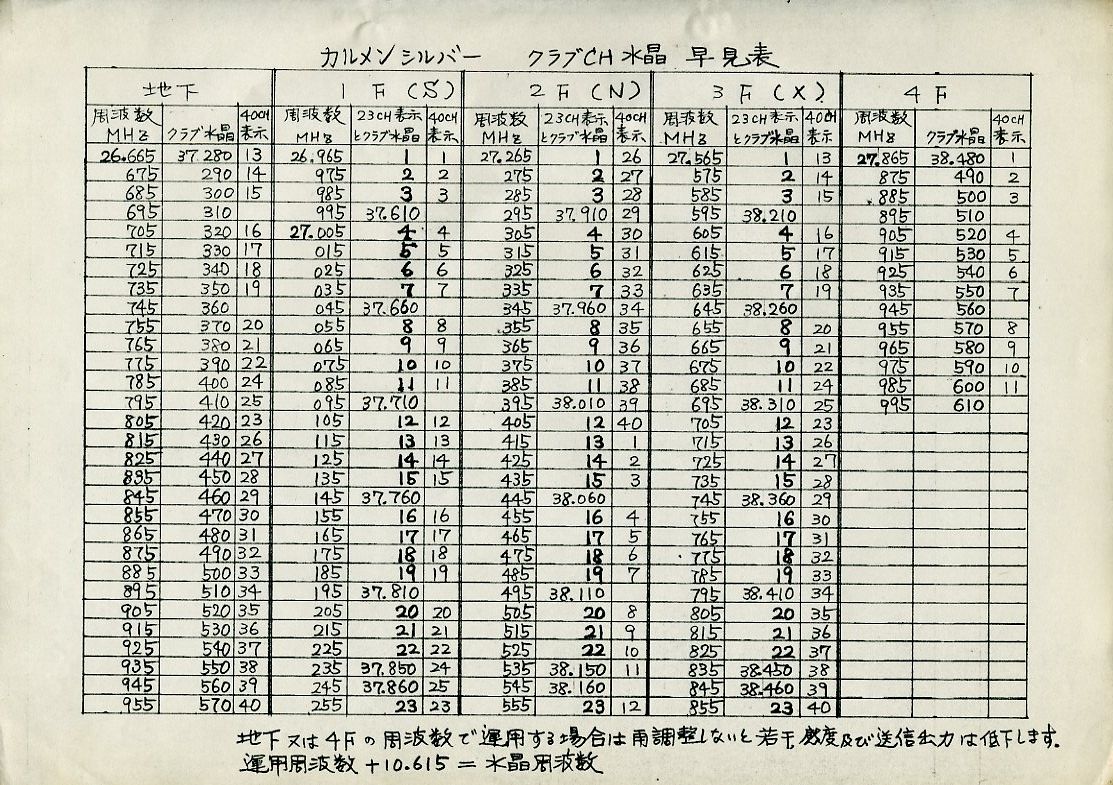 カルメンシルバー クラブCH水晶 早見表
地下 1F(S) 2F(N) 3F(X) 4F
周波数MHz クラブ水晶 40CH表示 周波数MHz 23CH表示とクラブ水晶 40CH表示 周波数MHz 23CH表示とクラブ水晶 40CH表示 周波数MHz 23CH表示とクラブ水晶 40CH表示 周波数MHz クラブ水晶 40CH表示
26.665 37.280 13 26.965 1 1 27.265 1 26 27.565 1 13 27.865 38.480 1
675 290 14 975 2 2 275 2 27 575 2 14 875 490 2
685 300 15 985 3 3 285 3 28 585 3 15 885 500 3
695 310 995 37.610 295 37.910 29 595 38.210 895 510
705 320 16 27.005 4 4 305 4 30 605 4 16 905 520 4
715 330 17 015 5 5 315 5 31 615 5 17 915 530 5
725 340 18 025 6 6 325 6 32 625 6 18 925 540 6
735 350 19 035 7 7 335 7 33 635 7 19 935 550 7
745 360 045 37.660 345 37.960 34 645 38.260 945 560
755 370 20 055 8 8 355 8 35 655 8 20 955 570 8
765 380 21 065 9 9 365 9 36 665 9 21 965 580 9
775 390 22 075 10 10 375 10 37 675 10 22 975 590 10
785 400 24 085 11 11 385 11 38 685 11 24 985 600 11
795 410 25 095 37.710 395 38.010 39 695 38.310 25 995 610
805 420 23 105 12 12 405 12 40 705 12 23
815 430 26 115 13 13 415 13 1 715 13 26
825 440 27 125 14 14 425 14 2 725 14 27
835 450 28 135 15 15 435 15 3 735 15 28
845 460 29 145 37.760 445 38.060 745 38.360 29
855 470 30 155 16 16 455 16 4 755 16 30
865 480 31 165 17 17 465 17 5 765 17 31
875 490 32 175 18 18 475 18 6 775 18 32
885 500 33 185 19 19 485 19 7 785 19 33
895 510 34 195 37.810 495 38.110 795 38.410 34
905 520 35 205 20 20 505 20 8 805 20 35
915 530 36 215 21 21 515 21 9 815 21 36
925 540 37 225 22 22 525 22 10 825 22 37
935 550 38 235 37.850 24 535 38.150 11 835 38.450 38
945 560 39 245 37.860 25 545 38.160 845 38.460 39
955 570 40 255 23 23 555 23 12 855 23 40
地下又は4Fの周波数で運用する場合は再調整しないと若干感度及び送信出力は低下します。
運用周波数+10.615=水晶周波数